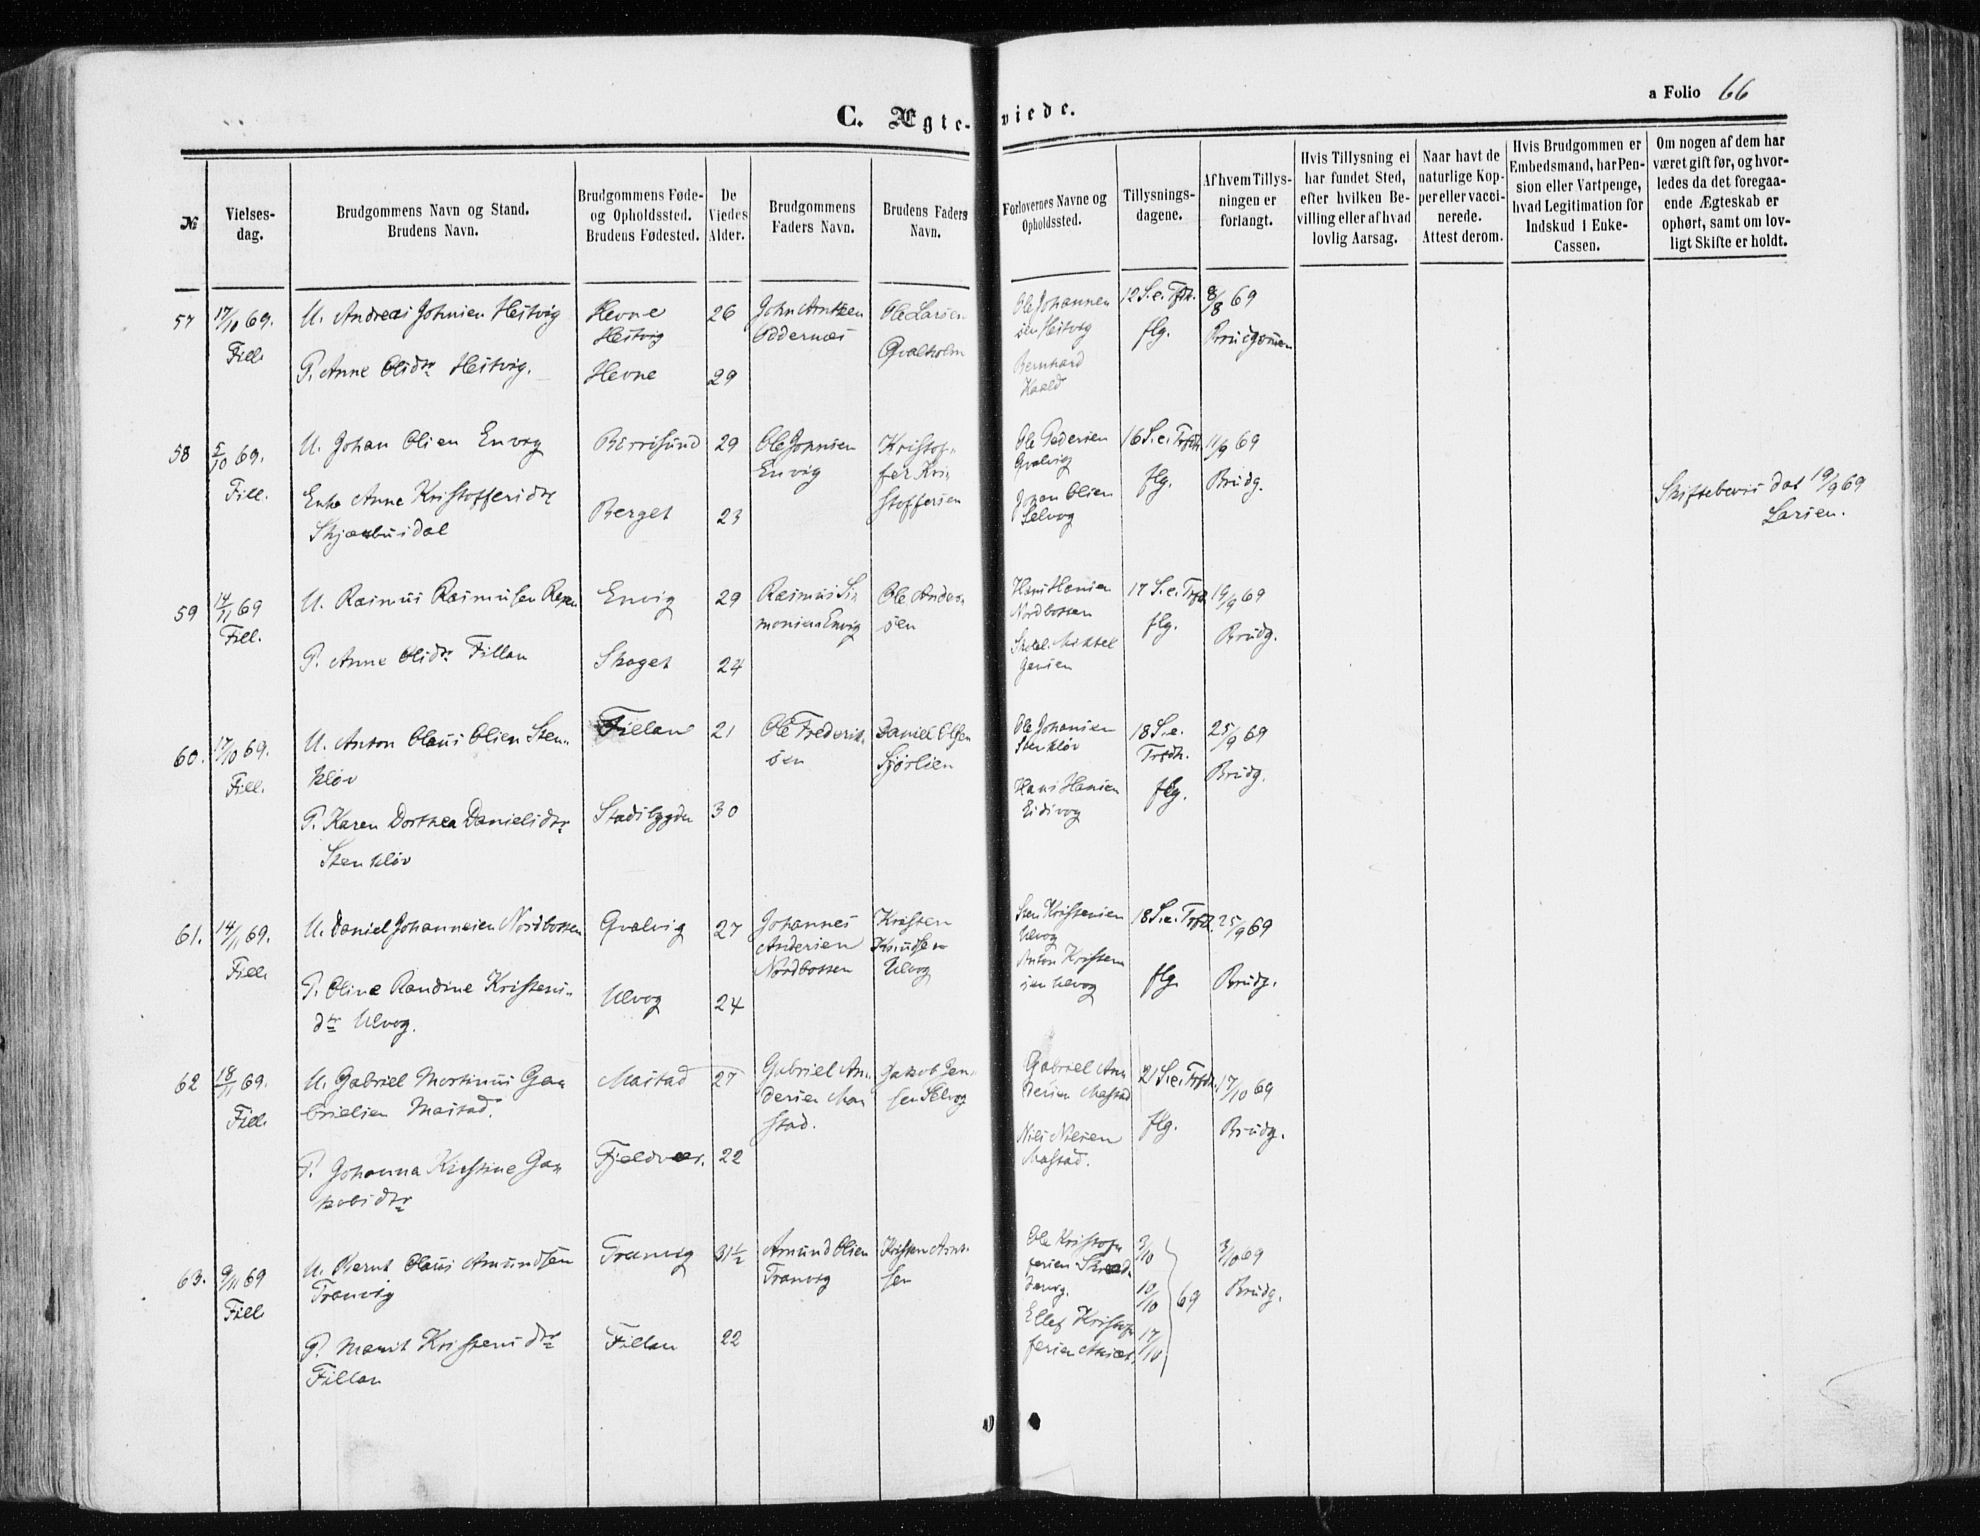 C. Ægte-viede.
a Folio 66
№
Vielses-
dag.
Brudgommens Navn og Stand.
Brudens Navn.
Brudgommens Føde-
og Opholdssted.
Brudens Fødested.
De
Viedes
Alder.
Brudgommens
Faders Navn.
Brudens Faders
Navn.
Forlovernes Navne og
Opholdssted.
Tillysnings-
dagene.
Af hvem Tillys-
ningen er
forlangt.
Hvis Tillysning ei
har fundet Sted,
efter hvilken Be-
villing eller af hvad
lovlig Aarsag.
Naar havt de
naturlige Kop-
per eller vacci-
nerede.
Attest derom.
Hvis Brudgommen er
Embedsmand, har Pen-
sion eller Vartpenge,
hvad Legitimation for
Indskud i Enke-
Cassen.
Om nogen af dem har
været gift før, og hvor-
ledes da det foregaa-
ende Ægteskab er
ophørt, samt om lov-
ligt Skifte er holdt.
57
17/10 69.
Fill.
U. Andreas Johnsen Hestvig
P. Anne Olsdtr Hestvig.
Hevne
Hestvig
Hevne
26
29
John Arntsen
Oddernes
Ole Larsen
Qvalholm
Ole Johannes
sen Hestvig
Bernhard
12 S. e. Trfdh.
flg.
8/8 69
Brudgommen
58
5/10 69.
Fill.
U. Johan Olsen Envog
Enke Anne Kristoffersdtr
29
Berget
23
Ole Johnsen
Envig
Kristof-
fer Kri-
stoffersen
Ole Pedersen
Qvalvig
Johan Olsen
Selvog
16 S. e. Trfdh.
flg.
11/9 69
Brudg.
Skiftebevis dat 19/9 69
Larsen.
59
14/11 69
Fill.
U. Rasmus Rasmusen
P. Anne Olsdtr Fillan
Envig
Skaget
29
24
Rasmus Si-
monsen Envig
Ole Ander-
sen
Hans Hansen
Nordbotten
Mikkel
Jensen
17 S. e. Trfdh.
flg.
19/9 69
Brudg.
60.
17/10 69.
Fill.
U. Anton Olaus Olsen Sten-
kløv
P. Karen Dorthea Danielsdtr
Stenkløv
Fillan
Stadsbygden
21
30
Ole Frederik-
sen
Daniel Olsen
Sjørlien
Ole Johansen
Stenkløv
Hans Hansen
Eidsvog
18 S. e.
Trfdh.
flg.
25/9 69
Brudg.
61.
14/11 69.
Fill.
U. Daniel Johannesen Nordbotten
P. Oline Randine Kristens-
dtr Ulvog.
Qvalvig
Ulvog
27
24
Johannes
Andersen
Nordbotten
Kristen
Knudsen
Ulvog
Sten Kristensen
Ulvog
Anton Kristen
sen Ulvog
18 S. e. Trfdh.
flg.
25/9 69
Brudg.
62
18/11 69.
Fill.
U. Gabriel Martinus Ga-
brielsen Mastad.
P. Johanna Kirstine Ja-
kobsdtr
Mastad
Fjeldvær.
27
22
Gabriel An-
dersen Ma-
stad.
Jakob Jen-
sen Selvog
Gabriel An-
dersen Mastad
Nils Nilsen
Mastad.
21 S. e. Trfdh.
flg.
17/10 69
Brudg.
63.
9/11 69
Fill.
U. Bernt Olaus Amundsen
Tranvig
P. Marit Kristensdtr
Fillan
Tranvig
Fillan
31 1/2
22
Amund Olsen
Tranvig
Kristen Arnt-
sen
Ole Kristof-
fersen
Ellef Kristof-
fersen
3/10
10/10
17/10
69
3/10 69
Brudg.